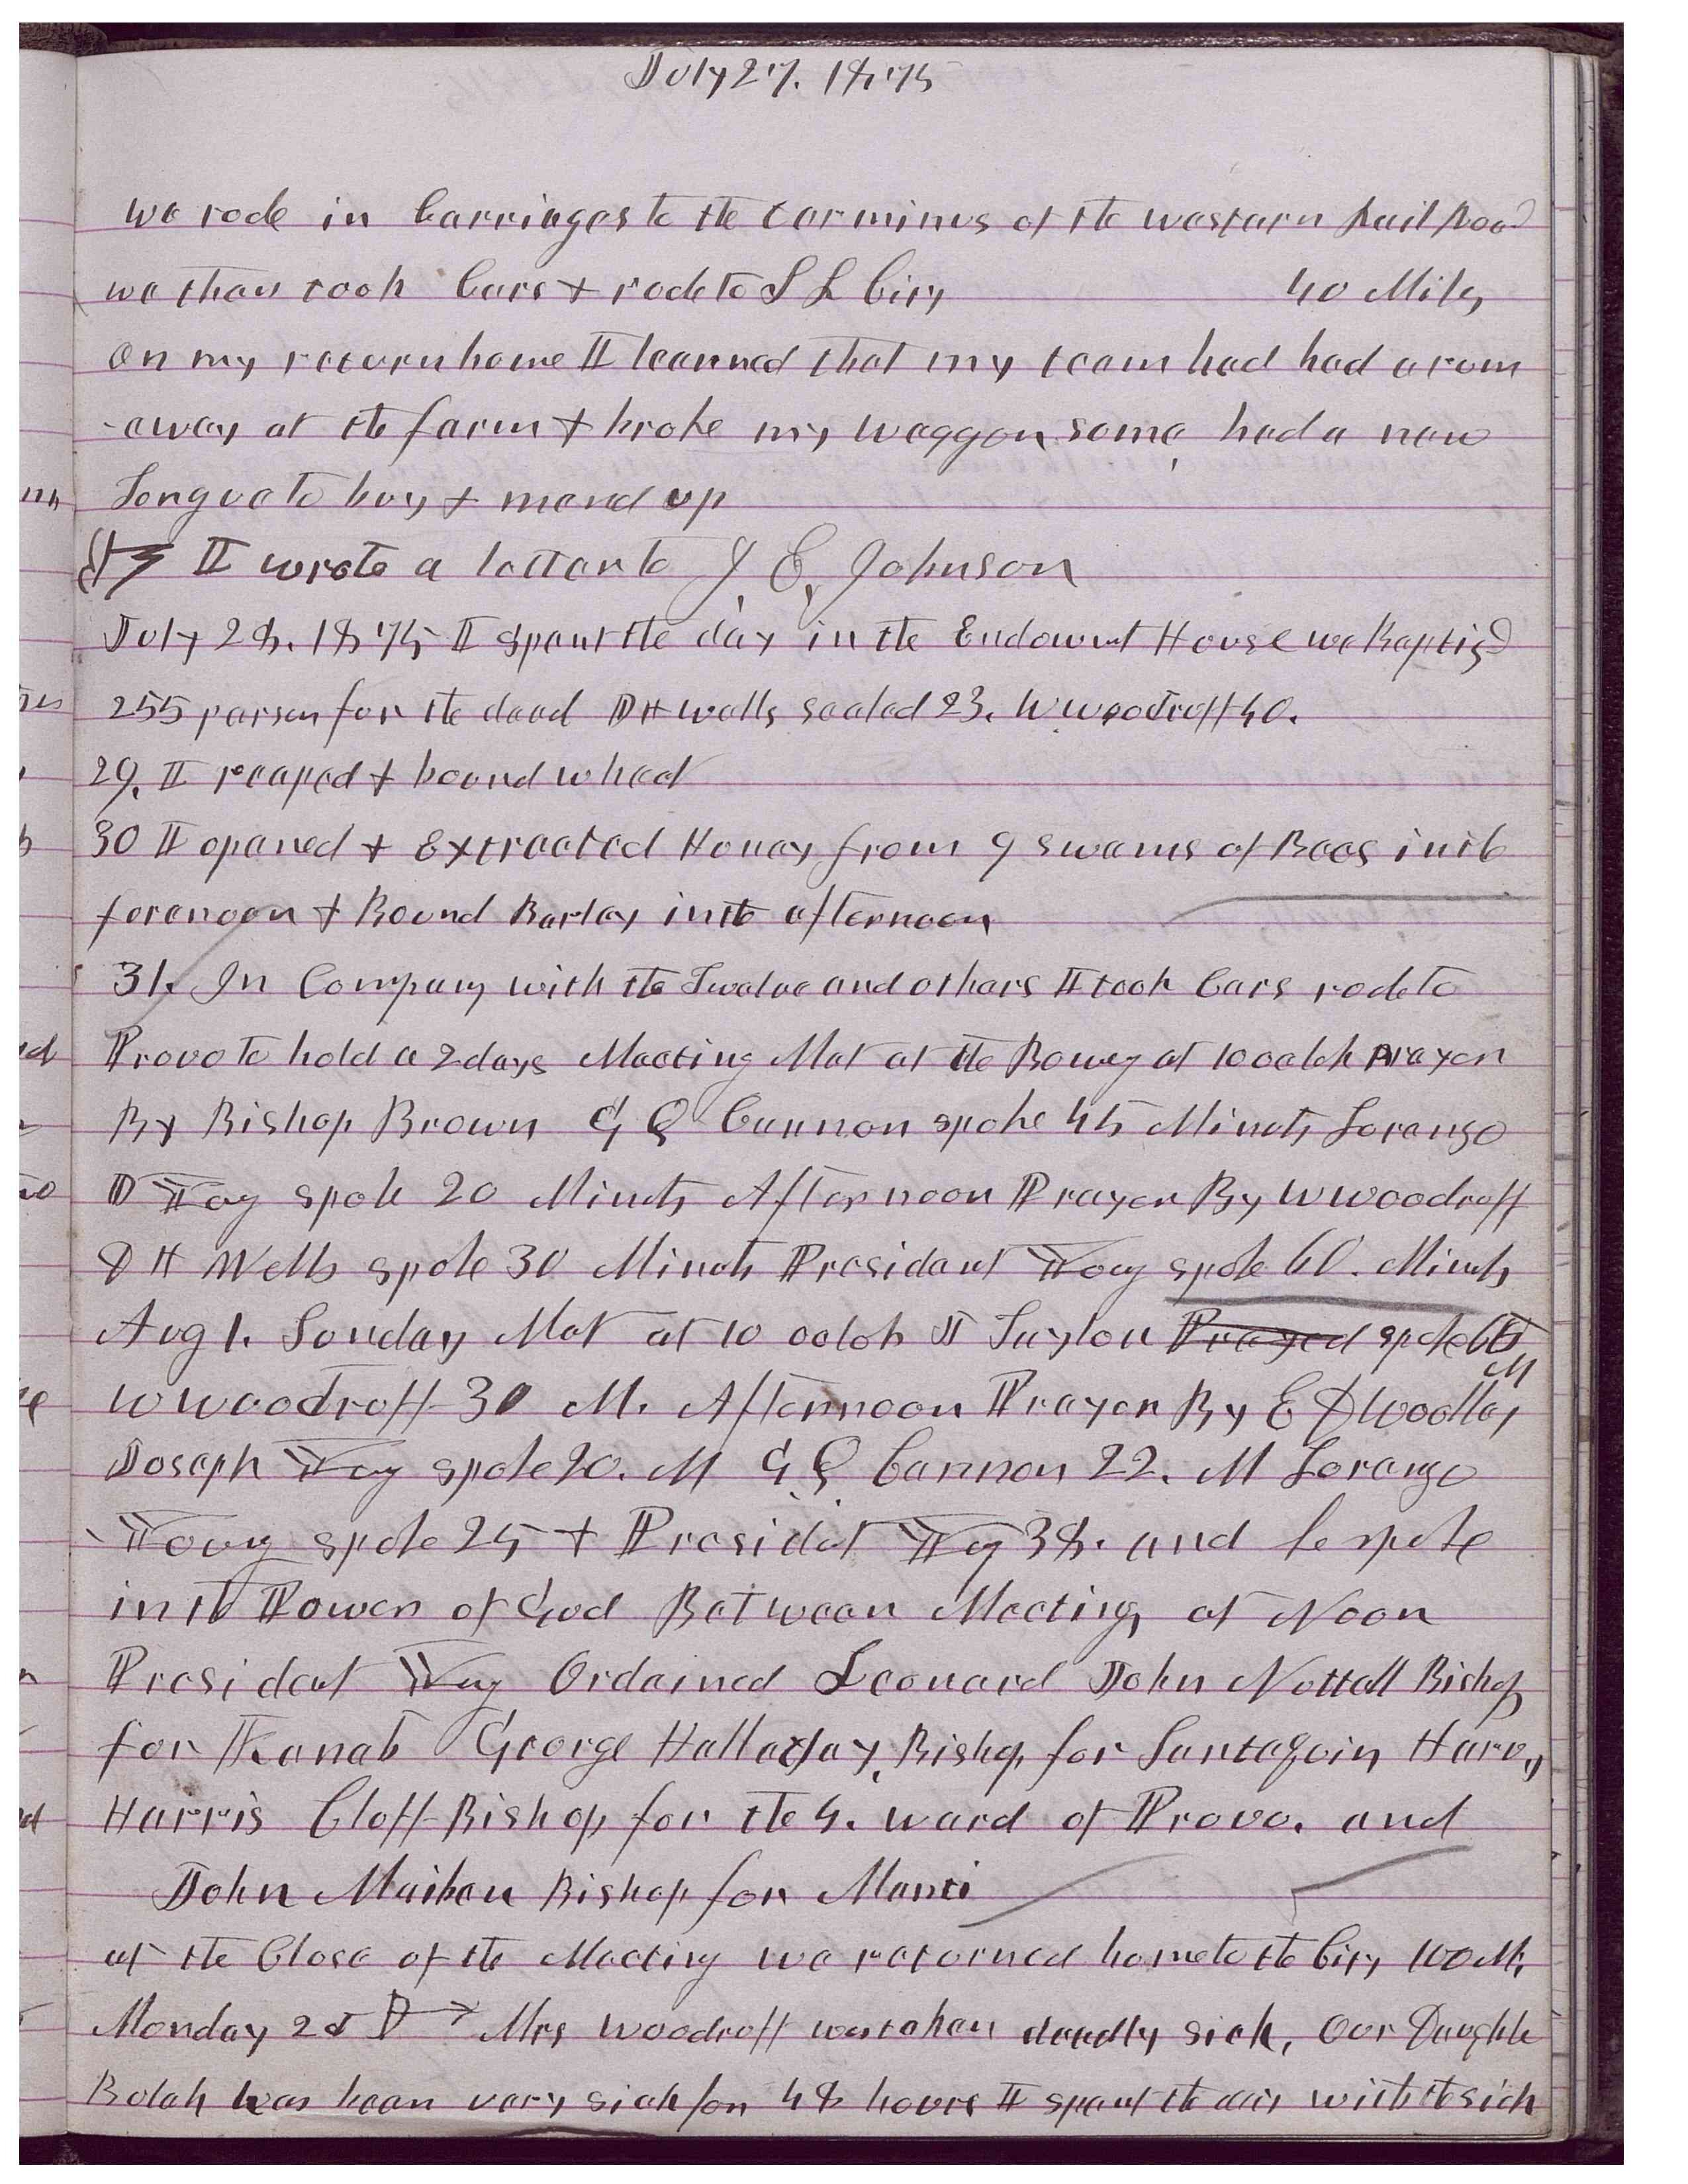 July 27. 1875
we rode in Carriages to the terminus of the western Rail Road
we then took Cars & rode to S L City 40 Miles
On my return home I learned that my team had had a run
-away at the farm & broke my waggon some, had a new
Tongue to buy & mend up
I wrote a letter to J. E. Johnson
July 28. 1875 I spent the day in the Endowmt House we Baptized
255 person for the dead D H Wells sealed 23. W Woodruff 40.
29. I reaped & bound wheat
30 I opened & Extracted Honey from 9 swarms of Bees in the
forenoon & Bound Barley in the afternoon
31. In Company with the Twelve and others I took Cars rode to
Provo to hold a 2 days Meeting Met at the Bowey at 10 oclok prayer
By Bishop Brown G Q Cannon spoke 45 Minuts Lorenzo
D Young spoke 20 Minuts Afternoon Prayer By W Woodruff
D H Wells spoke 30 Minuts President Young spoke 60. Minuts
Aug 1. Sunday Met at 10 oclok J Taylor Prayed spoke 65
M
W Woodruff 30 M. Afternoon Prayer By E D Woolley
Joseph Young spoke 20. M G Q Cannon 22. M Lorenzo
Young spoke 25 & Presidet Young 38. and he spoke
in the Power of God Between Meeting at Noon
President Young Ordained Leonard John Nuttall Bishop
for Kanab George Halladay, Bishop for Santaquin Harvy
Harris Cluff Bishop for the 4. ward of Provo. and
John Maiben Bishop for Manti
at the Close of the Meeting we returned home to the City 100 M.
Monday 2d Mrs Woodruff was taken deadly sick, Our Daughter
Bulah has been very sick for 48 hours I spent the day with the sick